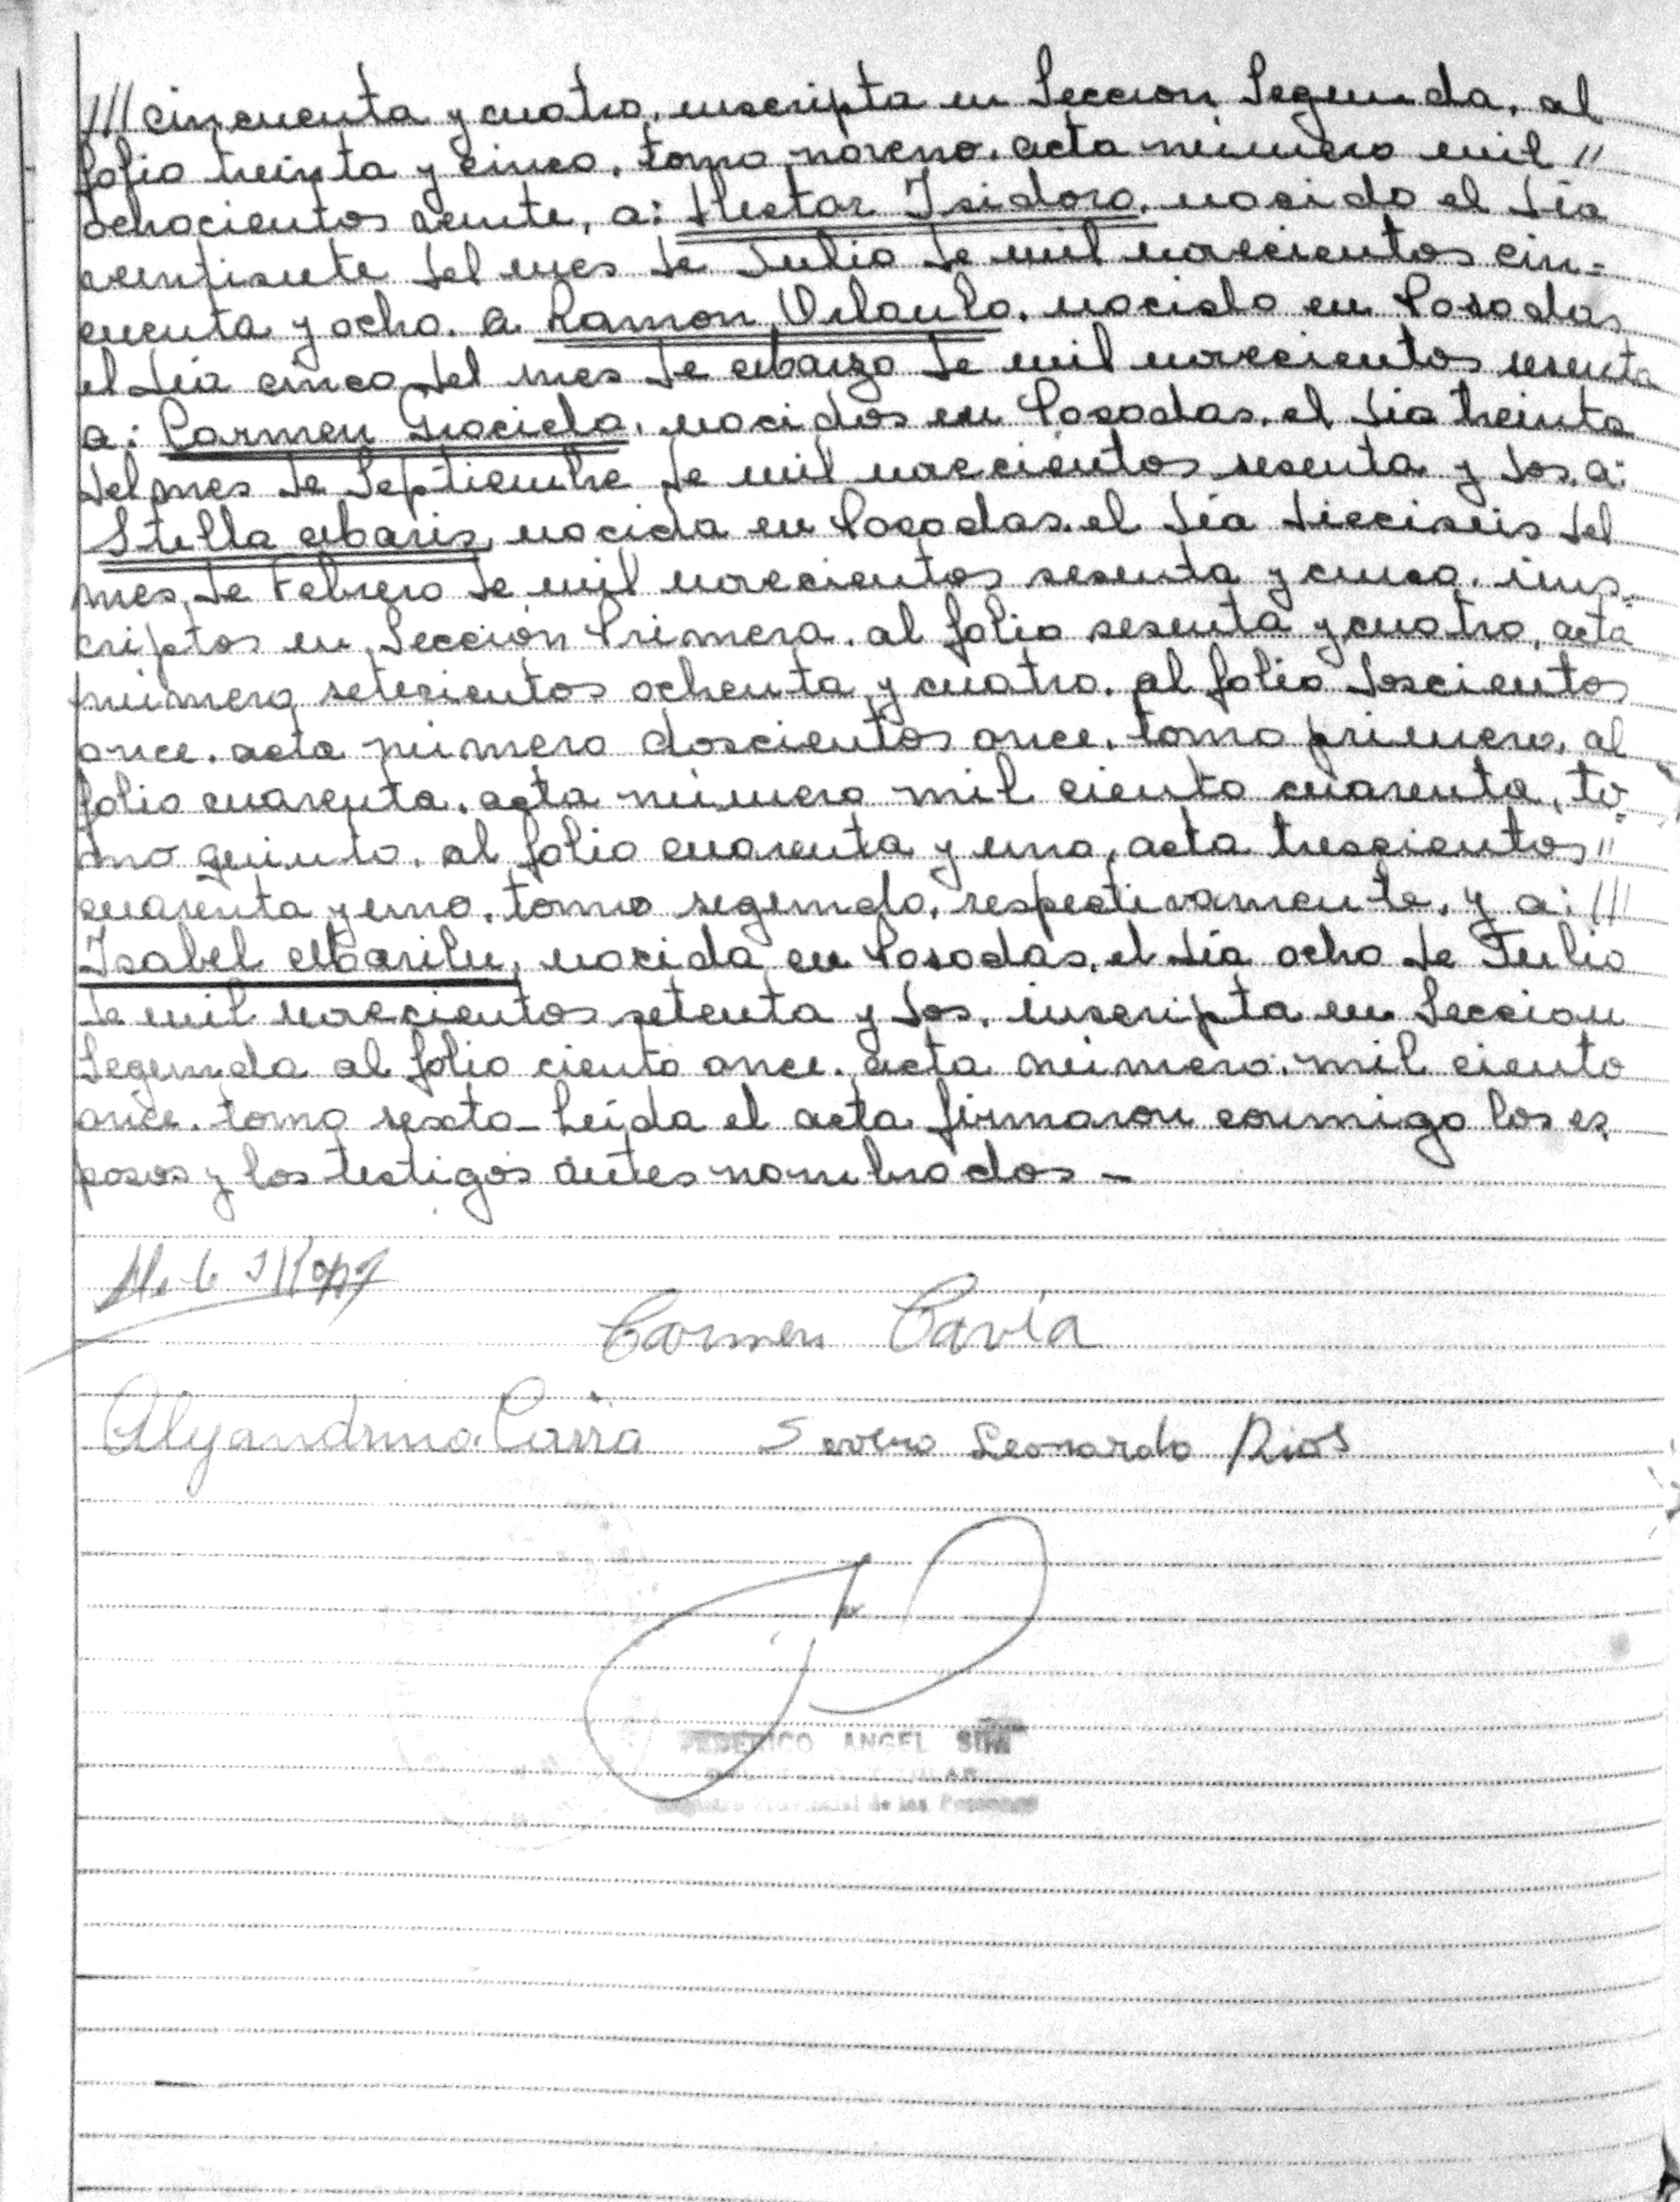 /// cincuenta y cuatro, inscripta en Seccion Segunda, al
folio treinta y cinco, tomo noveno, acta número mil //
ochocientos veinte, a: Hestar Isidoro, nacido el día
veintisiete del mes de Julio de mil novecientos cin-
cuenta y ocho. a Ramon Orlando, nacido en Posadas
el día cinco del mes de Marzo de mil novecientos sesenta
a: Carmen Graciela, nacidos en Posadas, el día treinta
del mes de Septiembre de mil novecientos sesenta y dos, a:
Stella Maris, nacida en Posadas, el día dieciseis del
mes de Febrero de mil novecientos sesenta y cinco, ins-
criptos en Sección Primera, al folio sesenta y cuatro, acta
número setecientos ochenta y cuatro, al folio doscientos
once, acta número doscientos once, tomo primero, al
folio cuarenta, acta número mil ciento cuarenta, to-
mo quinto, al folio cuarenta y uno, acta trescientos //
cuarenta y uno, tomo segundo, respectivamente, y a: ///
Isabel Marilu, nacida en Posadas, el día ocho de Julio
de mil novecientos setenta y dos, inscripta en Seccion
Segunda al folio ciento once, acta número mil ciento
once, tomo sexto- Leída el acta firmaron conmigo los es-
posos y los testigos antes nombrados -
Carmen Cavia
Alejandrina Cavia Severo Leonardo Rios
FEDERICO ANGEL
Registro Provincial de las Personas